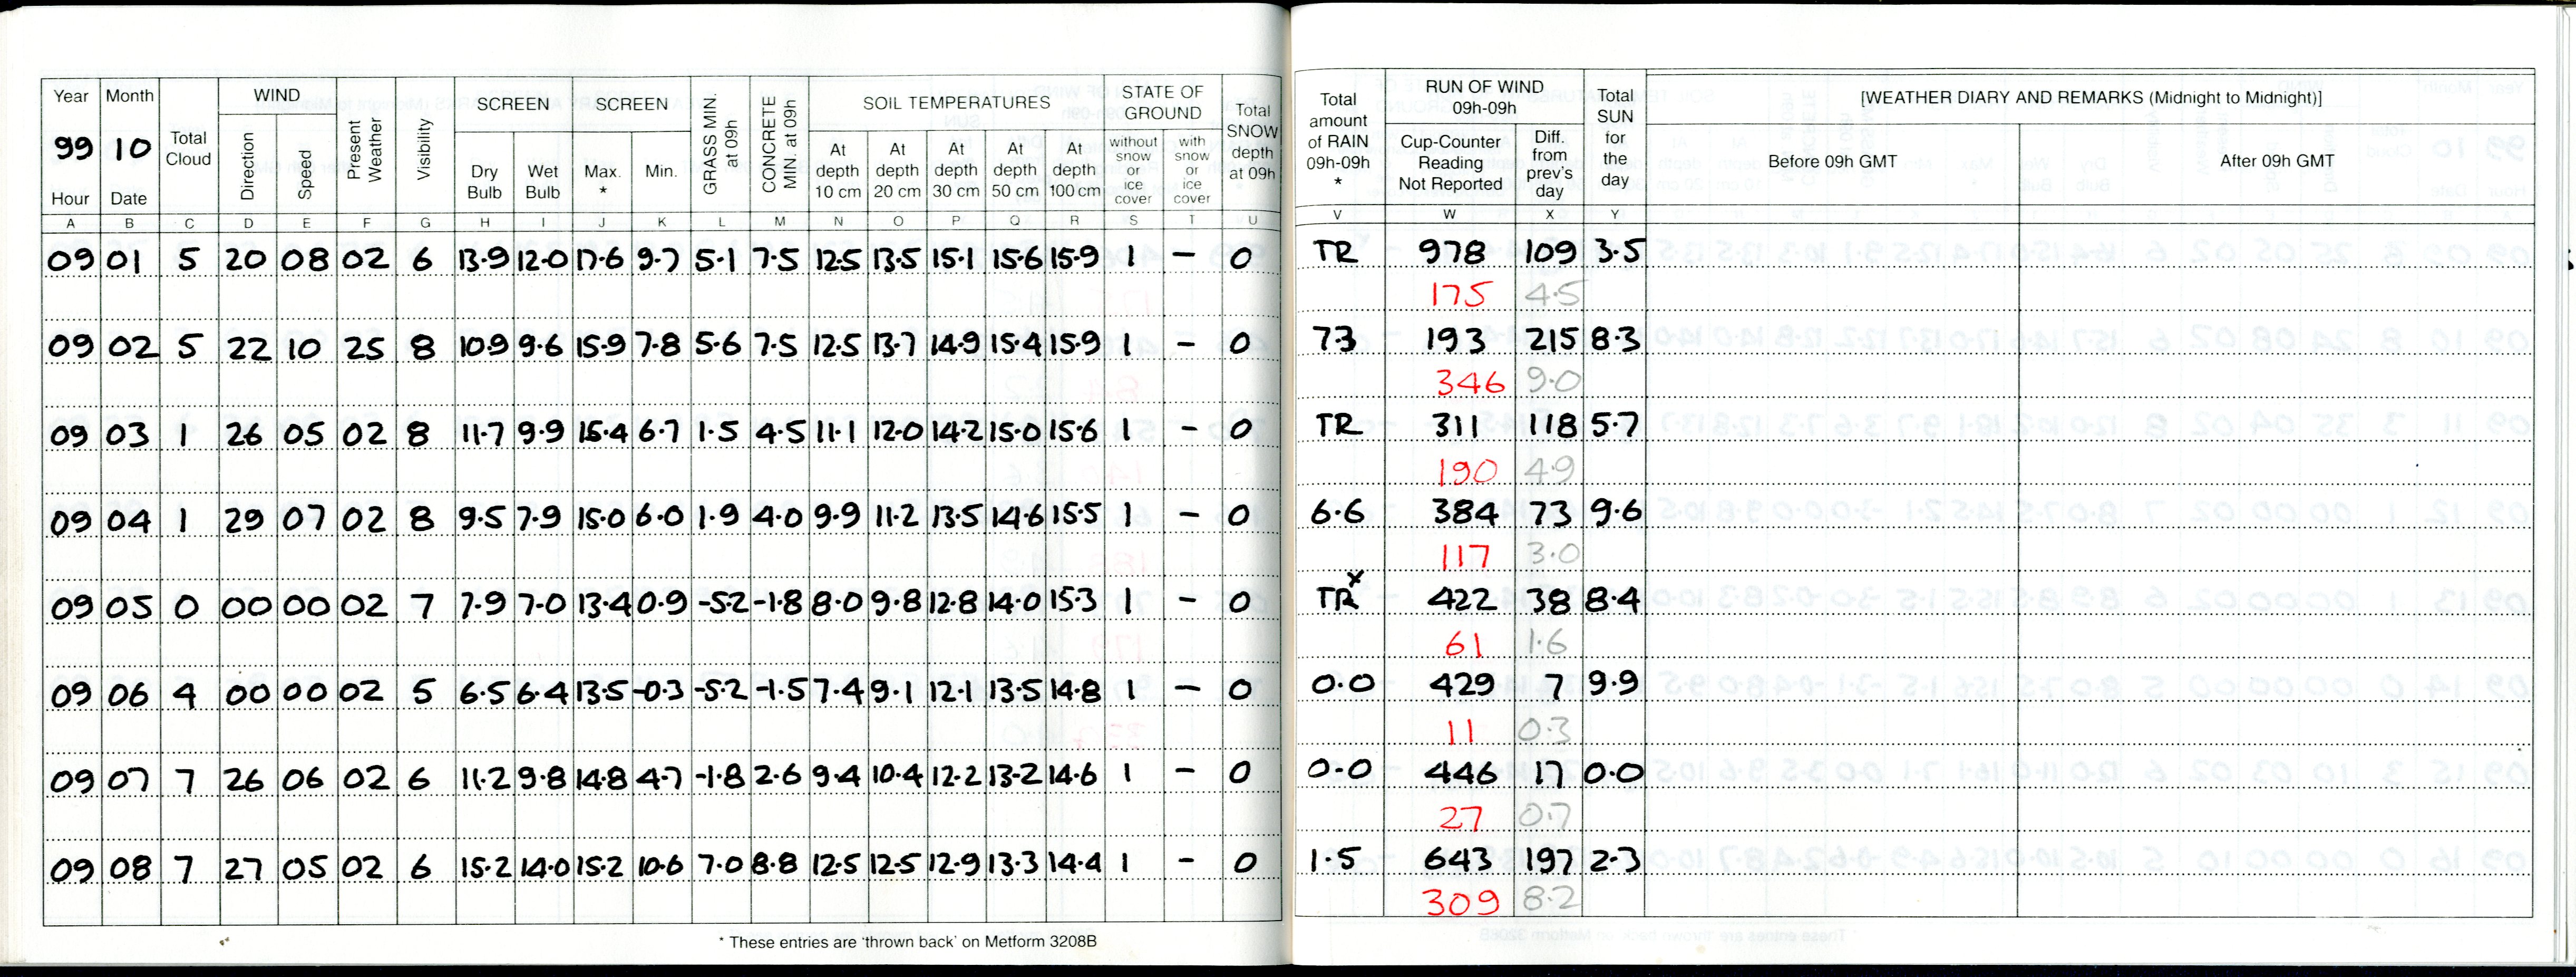 Year Month Total Cloud WIND Present Weather Visibility SCREEN SCREEN GRASS MIN. at 09h CONCRETE MIN. at 09h SOIL TEMPERATURES STATE OF GROUND Total SNOW depth at 09h Total amount of RAIN 09h-09h * RUN OF WIND 09h-09h Total SUN for the day [WEATHER DIARY AND REMARKS (Midnight to Midnight)]
99 10 Direction Speed Dry Bulb Wet Bulb Max. * Min. At depth 10 cm At depth 20 cm At depth 30 cm At depth 50 cm At depth 100 cm without snow or ice cover with snow or ice cover Cup-Counter Reading Not Reported Diff. from prev's day Before 09h GMT After 09h GMT
Hour Date
A B C D E F G H I J K L M N O P Q R S T U V W X Y
09 01 5 20 08 02 6 13.9 12.0 17.6 9.7 5.1 7.5 12.5 13.5 15.1 15.6 15.9 1 - 0 TR 978 109 3.5
175 4.5
09 02 5 22 10 25 8 10.9 9.6 15.9 7.8 5.6 7.5 12.5 13.7 14.9 15.4 15.9 1 - 0 7.3 193 215 8.3
346 9.0
09 03 1 26 05 02 8 11.7 9.9 15.4 6.7 1.5 4.5 11.1 12.0 14.2 15.0 15.6 1 - 0 TR 311 118 5.7
190 4.9
09 04 1 29 07 02 8 9.5 7.9 15.0 6.0 1.9 4.0 9.9 11.2 13.5 14.6 15.5 1 - 0 6.6 384 73 9.6
117 3.0
09 05 0 00 00 02 7 7.9 7.0 13.4 0.9 -5.2 -1.8 8.0 9.8 12.8 14.0 15.3 1 - 0 TR x 422 38 8.4
61 1.6
09 06 4 00 00 02 5 6.5 6.4 13.5 -0.3 -5.2 -1.5 7.4 9.1 12.1 13.5 14.8 1 - 0 0.0 429 7 9.9
11 0.3
09 07 7 26 06 02 6 11.2 9.8 14.8 4.7 -1.8 2.6 9.4 10.4 12.2 13.2 14.6 1 - 0 0.0 446 17 0.0
27 0.7
09 08 7 27 05 02 6 15.2 14.0 15.2 10.6 7.0 8.8 12.5 12.5 12.9 13.3 14.4 1 - 0 1.5 643 197 2.3
309 8.2
* These entries are 'thrown back' on Metform 3208B